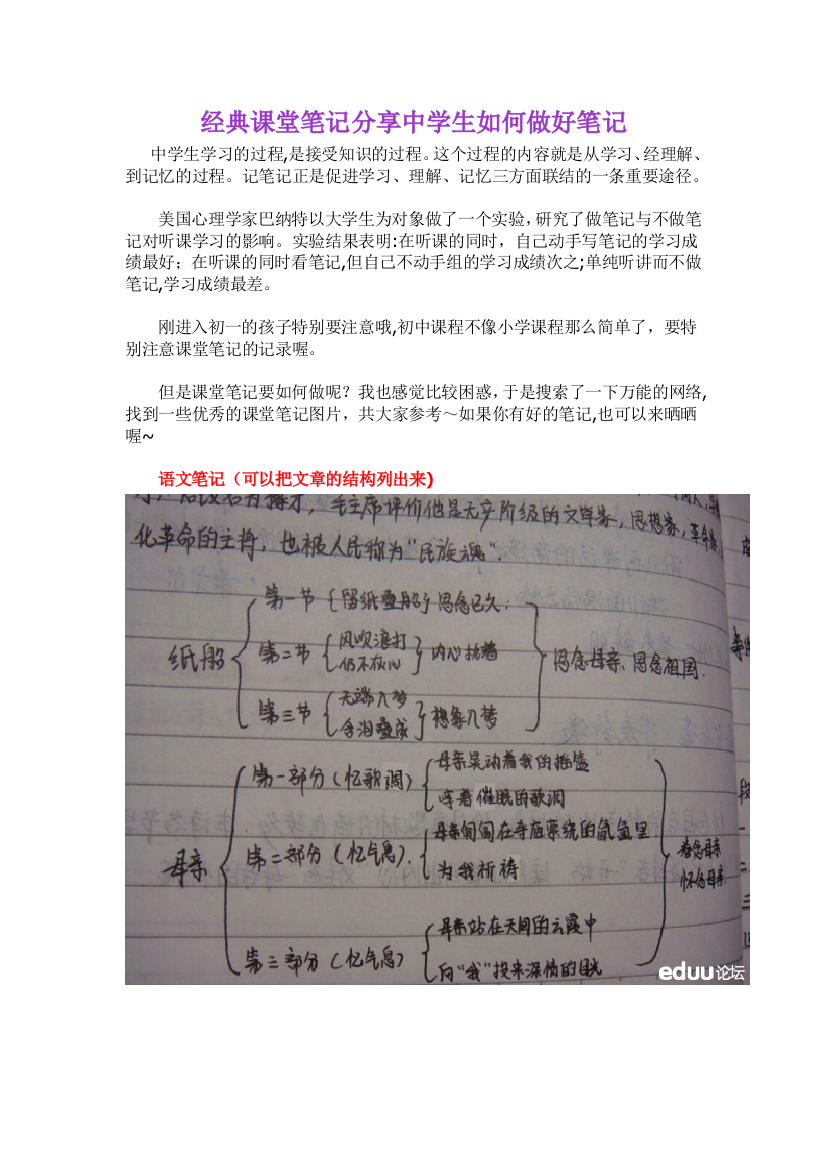 经典课堂笔记分享中学生如何做好笔记
中学生学习的过程,是接受知识的过程。这个过程的内容就是从学习、经理解、
到记忆的过程。记笔记正是促进学习、理解、记忆三方面联结的一条重要途径。
美国心理学家巴纳特以大学生为对象做了一个实验,研究了做笔记与不做笔
记对听课学习的影响。实验结果表明:在听课的同时，自己动手写笔记的学习成
绩最好；在听课的同时看笔记,但自己不动手组的学习成绩次之;单纯听讲而不做
笔记,学习成绩最差。
刚进入初一的孩子特别要注意哦,初中课程不像小学课程那么简单了，要特
别注意课堂笔记的记录喔。
但是课堂笔记要如何做呢？我也感觉比较困惑,于是搜索了一下万能的网络,
找到一些优秀的课堂笔记图片，共大家参考～如果你有好的笔记,也可以来晒晒
喔~
语文笔记（可以把文章的结构列出来)
毛主席评价他是无产阶级的文学家，思想家，革命家
化革命的主将，也被人民称为“民族魂”.
纸船
第一节 {留纸叠船} 思念已久；
第二节 {风吹浪打 仍不灰心} 内心执着
第三节 {无端入梦 含泪叠成} 想象入梦
思念母亲、思念祖国.
母亲
第一部分（忆歌调）
母亲晃动着我的摇篮
哼着催眠的歌调
第二部分（忆气息）.
母亲匍匐在寺庙缭绕的氤氲里
为我祈祷
第三部分（忆气息）
母亲站在天间的云霞中
向“我”投来深情的目光
眷念母亲
怀念母亲.
eduu论坛